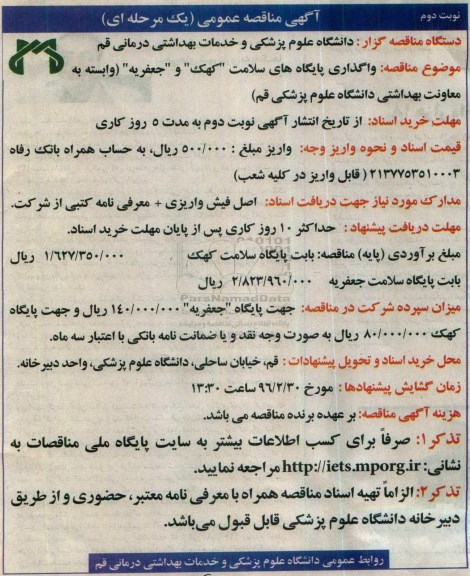 نوبت دوم
آگهی مناقصه عمومی (یک مرحله ای)
دستگاه مناقصه گزار: دانشگاه علوم پزشکی و خدمات بهداشتی درمانی قم
موضوع مناقصه: واگذاری پایگاه های سلامت "کهک" و "جعفریه" (وابسته به
معاونت بهداشتی دانشگاه علوم پزشکی قم)
مهلت خرید اسناد: از تاریخ انتشار آگهی نوبت دوم به مدت ۵ روز کاری
قیمت اسناد و نحوه واریز وجه: واریز مبلغ : ۵۰۰/۰۰۰ ریال، به حساب همراه بانک رفاه
۲۱۳۷۷۵۳۵۱۰۰۰۳ ( قابل واریز در کلیه شعب)
مدارک مورد نیاز جهت دریافت اسناد: اصل فیش واریزی + معرفی نامه کتبی از شرکت.
مهلت دریافت پیشنهاد : حداکثر ۱۰ روز کاری پس از پایان مهلت خرید اسناد.
مبلغ برآوردی (پایه) مناقصه: بابت پایگاه سلامت کهک ۱/۶۲۷/۳۵۰/۰۰۰ ریال
بابت پایگاه سلامت جعفریه ۲/۸۲۳/۹۶۰/۰۰۰ ریال
ParsNamadData
میزان سپرده شرکت در مناقصه: جهت پایگاه "جعفریه" ۱۴۰/۰۰۰/۰۰۰ ریال و جهت پایگاه
کهک ۸۰/۰۰۰/۰۰۰ ریال به صورت وجه نقد و یا ضمانت نامه بانکی با اعتبار سه ماه.
محل خرید اسناد و تحویل پیشنهادات: قم، خیابان ساحلی، دانشگاه علوم پزشکی، واحد دبیرخانه.
زمان گشایش پیشنهادها : مورخ ۹۶/۲/۳۰ ساعت ۱۳:۳۰
هزینه آگهی مناقصه: بر عهده برنده مناقصه می باشد.
تذکر۱: صرفاً برای کسب اطلاعات بیشتر به سایت پایگاه ملی مناقصات به
نشانی: http://iets.mporg.ir مراجعه نمایید.
تذکر۲: الزاماً تهیه اسناد مناقصه همراه با معرفی نامه معتبر، حضوری و از طریق
دبیرخانه دانشگاه علوم پزشکی قابل قبول می‌باشد.
روابط عمومی دانشگاه علوم پزشکی و خدمات بهداشتی درمانی قم